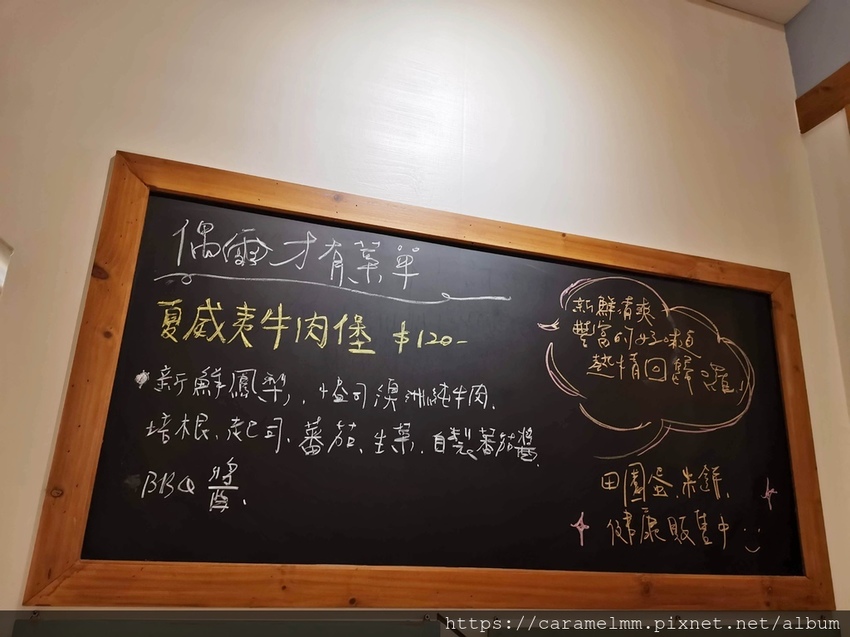 偶爾才有菜單
夏威夷牛肉堡 $120-
新鮮鳳梨、恰司澳洲純牛肉、
培根、起司、蕃茄、生菜、自製蕃茄醬
BBQ 醬、
新鮮清爽、
豐富的好味道
熱情回歸囉!
田園蛋.米餅、
健康販售中
https://caramelmm.pixnet.net/album